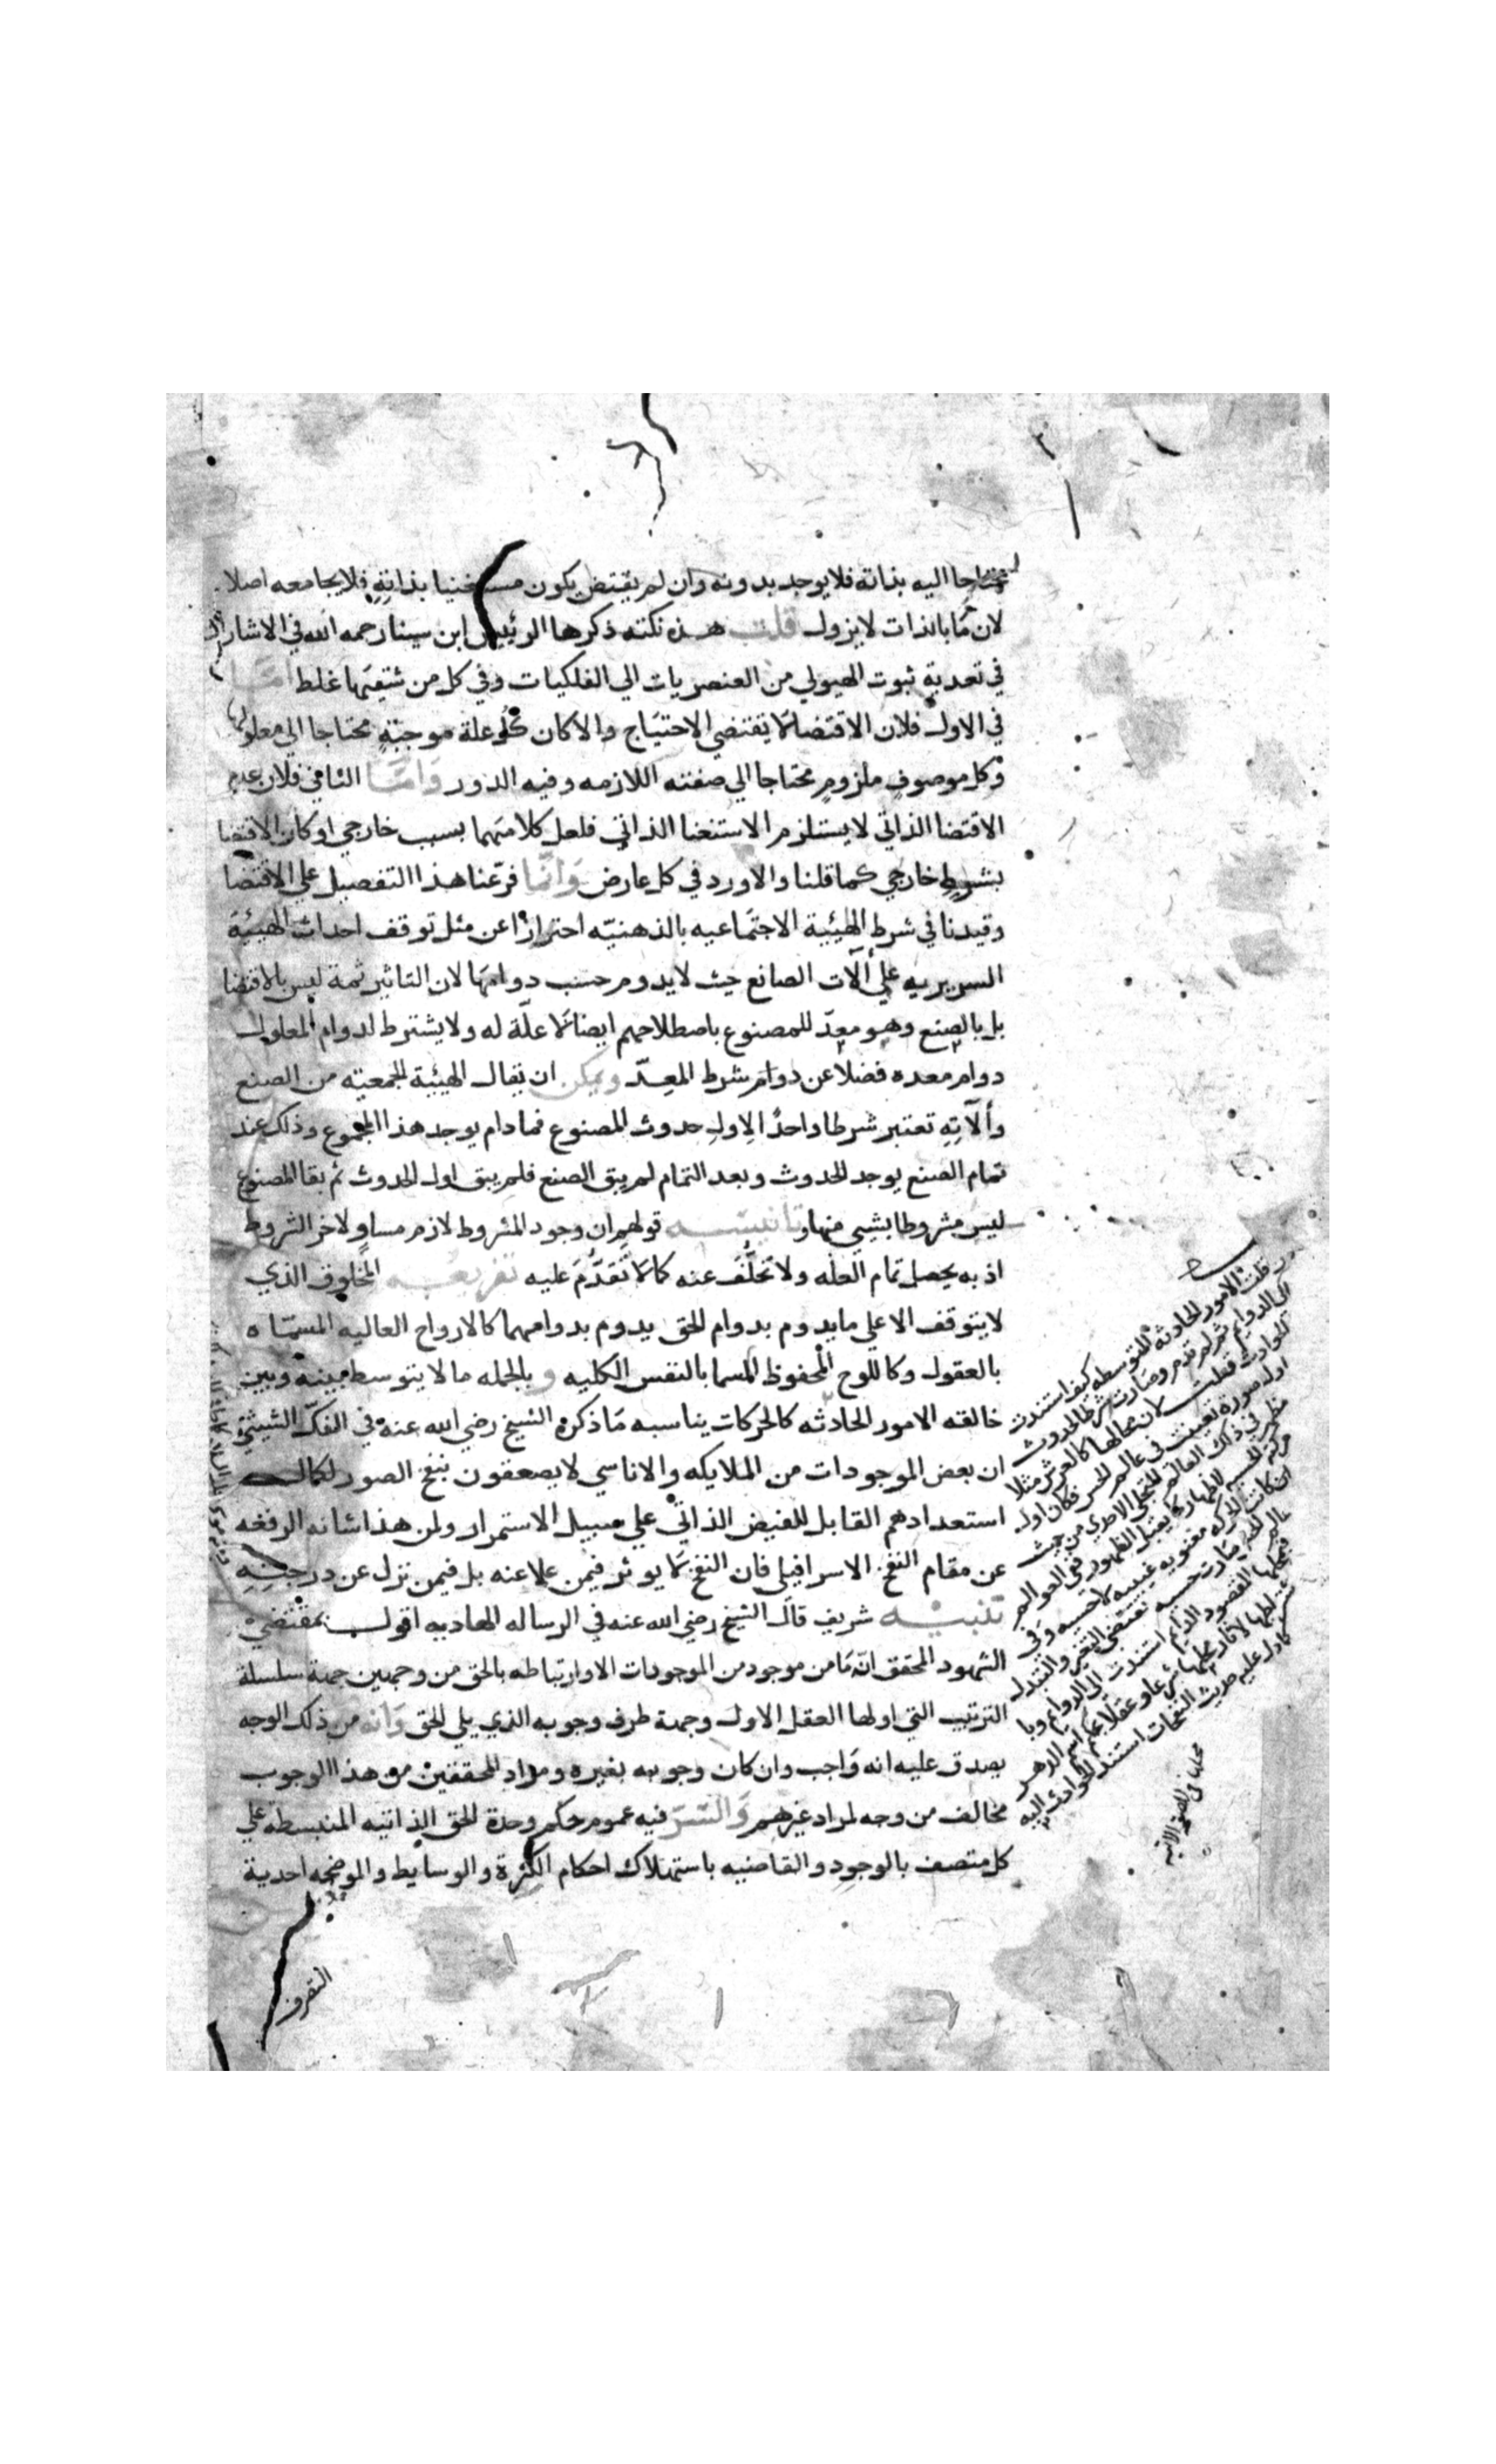 محتاجا اليه بذاته فلا يوجد بدونه وان لم يقتض يكون مستغنيا بذاته فلا يجامعه اصلا
لان ما بالذات لا يزول قلت هذه نكته ذكرها الرئيس ابن سينا رحمه الله في الاشارات
في تعدية ثبوت الهيولي من العنصريات الي الفلكيات وفي كل من شقيها غلط امّا
في الاول فلان الاقتضا لا يقتضي الاحتياج والا كان كل علة موجبة محتاجا الي معلولها
وكل موصوف ملزوم محتاجا الي صفته اللازمه وفيه الدور وَامّا الثاني فلان عدم
الاقتضا الذاتي لا يستلزم الاستغنا الذاتي فلعل كلا منهما بسبب خارجي او كان الاقتضا
بشرط خارجي كما قلنا والا ورد في كل عارض وَانّما فرّعنا هذا التفصيل علي الاقتضا
وقيدنا في شرط الهيئية الاجتماعيه بالذهنيّه احترازا عن مثل توقف احداث الهيئية
السريريه علي ألآت الصانع حيث لا يدوم حسب دوامها لان التاثير ثمة ليس بالاقتضا
بل بالصنع وهو معدّ للمصنوع باصطلاحهم ايضا لا علّة له ولا يشترط لدوام المعلول
دوام معده فضلا عن دوام شرط المعدّ ويمكن ان يقال الهيئية الجمعيته من الصنع
وألآتِهِ تعتبر شرطا واحدًا لاول حدوث المصنوع فما دام يوجد هذا المجموع وذلك عند
تمام الصنع يوجد الحدوث وبعد التمام لم يبق الصنع فلم يبق اول الحدوث ثم بقا المصنوع
ليس مشروطا بشيي منها وتانيسه قولهم ان وجود المشروط لازم مساوٍ لاخر الشروط
اذ به يحصل تمام العله ولا تخلّف عنه كما لا تقدّم عليه تفريعه المخلوق الذي
لا يتوقف الا علي ما يدوم بدوام الحق يدوم بدوامهما كالارواح العاليه المسمّاه
بالعقول وكاللوح المحفوظ المسما بالنفس الكليه وبالجمله ما لا يتوسط بينه وبين
خالقه الامور الحادثه كالحركات يناسبه مَا ذكره الشيخ رضي الله عنه في الفكّ الشيثيّ
ان بعض الموجودات من الملايكه والاناسي لا يصعقون بنفخ الصور لكمال
استعدادهم القابل للفيض الذاتي علي سبيل الاستمرار ولمن هذا شانه الرفعه
عن مقام النفخ الاسرافيلي فان النفخ لا يوثر فيمن علا عنه بل فيمن نزل عن درجته
تنبيه شريف قال الشيخ رضي الله عنه في الرساله الهاديه اقول بمقتضي
الشهود المحقق انّه مَا من موجود من الموجودات الا وارتباطه بالحق من وجهين جهة سلسلة
الترتيب التي اولها العقل الاول وجهة طرف وجوبه الذي يلي الحق وَانه من ذلك الوجه
يصدق عليه انه وَاجب وان كان وجوبه بغيره ومراد المحققين من هذا الوجوب
مخالف من وجه لمراد غيرهم وَالسّرّ فيه عموم حكم وحدة الحق الذاتيه المنبسطه علي
كل متصف بالوجود والقاضيه باستهلاك احكام الكثرة والوسايط والموضحه احدية
التصرف
ان قلت الامور الحادثة المتوسطه كيف استندت
الي الدوايم ثم لم تدم وصارت شرطا لحدوث
الحوادث قلت لان محالها كالعرش مثلا
اول صورة تعينت في عالم الحس فكان اول
مظهر في ذلك العالم للتجلي الاحدي من حيث